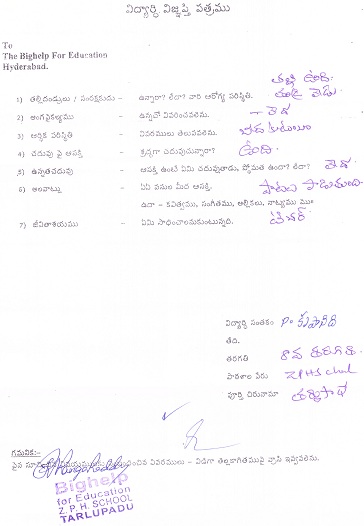 విద్యార్థి విజ్ఞప్తి పత్రము
To
The Bighelp For Education
Hyderabad.
తల్లి ఉంది.
1) తల్లిదండ్రులు / సంరక్షకుడు - ఉన్నారా? లేదా? వారి ఆరోగ్య పరిస్థితి. తండ్రి లేడు
2) అంగవైకల్యము - ఉన్నచో వివరించవలెను. - లేదు
3) ఆర్థిక పరిస్థితి - వివరములు తెలుపవలెను. పేద కుటుంబం
4) చదువు పై ఆసక్తి - శ్రద్ధగా చదువుచున్నారా? ఉంది.
5) ఉన్నతచదువు - ఆసక్తి ఉంటే ఏమి చదువుతాడు, స్తోమత ఉందా? లేదా? లేదు
6) అలవాట్లు - ఏఏ పనుల మీద ఆసక్తి. పాటలు పాడుతుంది.
ఉదా - కవిత్వము, సంగీతము, అల్లికలు, నాట్యము మొ
7) జీవితాశయము - ఏమి సాధించాలనుకుంటున్నది. టీచర్
విద్యార్థి సంతకం P.
తేది.
తరగతి 10వ తరగతి
పాఠశాల పేరు ZPHS chool
పూర్తి చిరునామా తర్లుపాడు
గమనిక:-
పైన వివరములు - విడిగా తెల్లకాగితముపై వ్రాసి ఇవ్వవలెను.
Bighelp
for Education
Z. P. H. SCHOOL
TARLUPADU